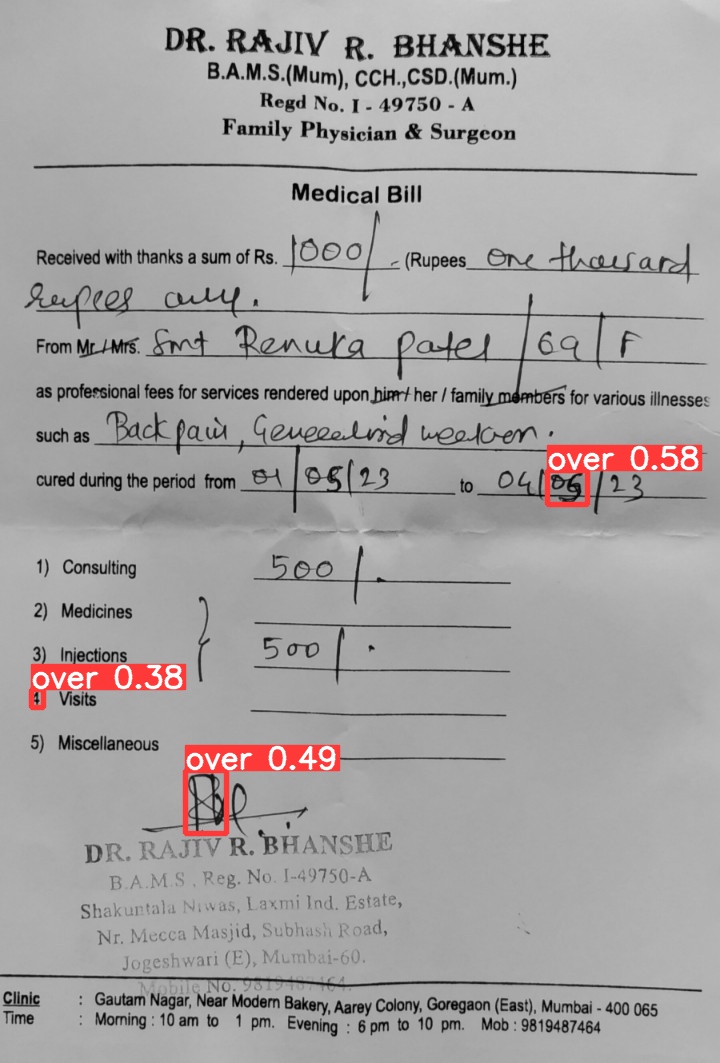 DR. RAJIV R. BHANSHE
B.A.M.S.(Mum), CCH.,CSD.(Mum.)
Regd No. I - 49750 - A
Family Physician & Surgeon
Medical Bill
Received with thanks a sum of Rs. 1000/- (Rupees One thousand
rupees only.
From Mr./Mrs. Smt Renuka Patel / 69 / F
as professional fees for services rendered upon him / her / family members for various illnesses
such as Back pain,
over 0.58
cured during the period from 01/05/23 to 04/05/23
1) Consulting 500/-
2) Medicines
3) Injections 500/-
over 0.38
4) Visits
5) Miscellaneous
over 0.49
DR. RAJIV R. BHANSHE
B.A.M.S. Reg. No. I-49750-A
Shakuntala Niwas, Laxmi Ind. Estate,
Nr. Mecca Masjid, Subhash Road,
Jogeshwari (E), Mumbai-60.
Mobile No. 9819487464.
Clinic : Gautam Nagar, Near Modern Bakery, Aarey Colony, Goregaon (East), Mumbai - 400 065
Time : Morning : 10 am to 1 pm. Evening : 6 pm to 10 pm. Mob : 9819487464